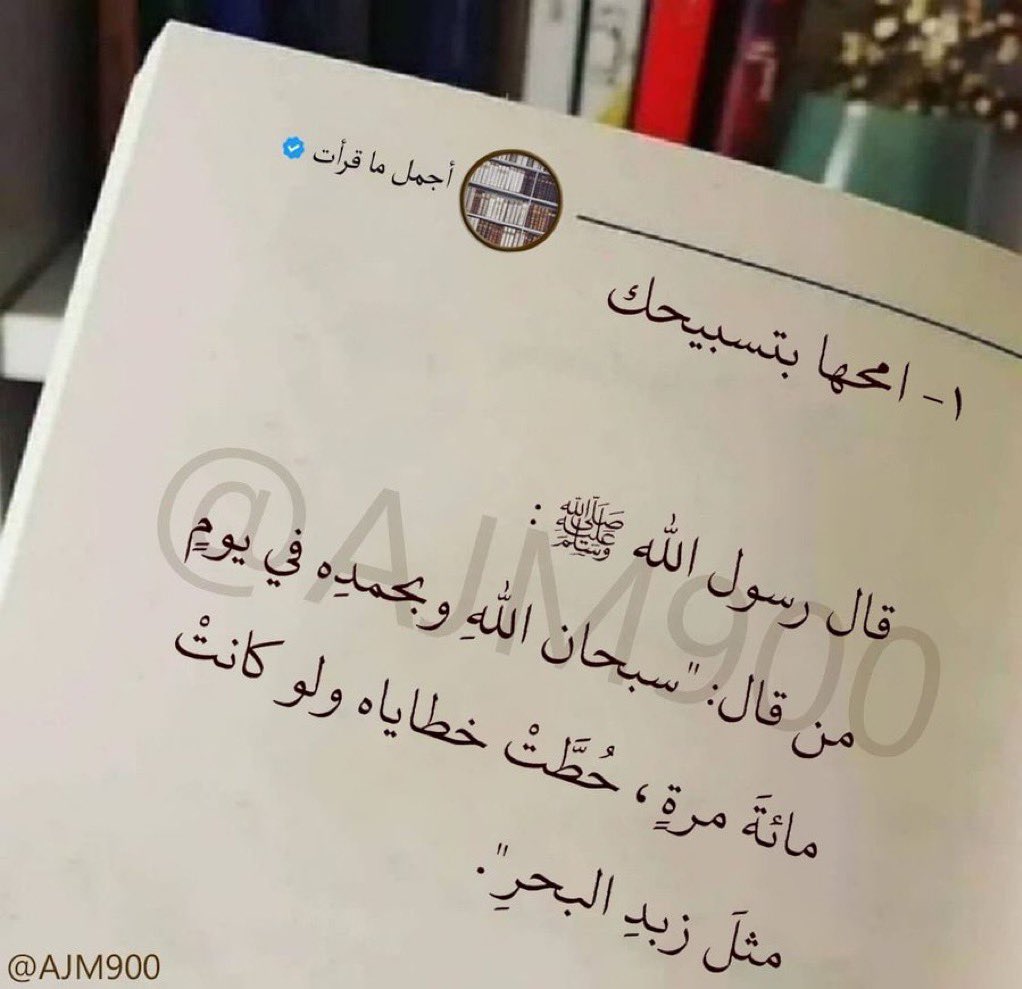 أجمل ما قرأت
١- امحها بتسبيحك
قال رسول الله ﷺ :
من قال: "سبحان اللهِ وبحمدِه في يومٍ
مائةَ مرةٍ ، حُطَّتْ خطاياه ولو كانتْ
مثلَ زبدِ البحرِ".
@AJM900
@AJM900